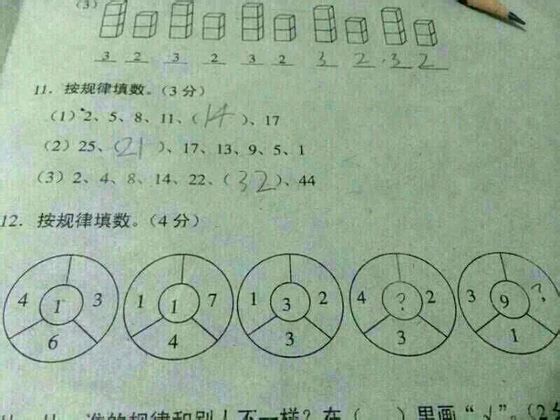 (3)
3 2 3 2 3 2 3 2 3 2
11. 按规律填数。(3分)
(1) 2、5、8、11、(14)、17
(2) 25、(21)、17、13、9、5、1
(3) 2、4、8、14、22、(32)、44
12. 按规律填数。(4分)
4 1 3 6
1 1 7 4
1 3 2 3
4 ? 2 3
3 9 ? 1
的规律和别人不一样?在( )里画“√”。(2